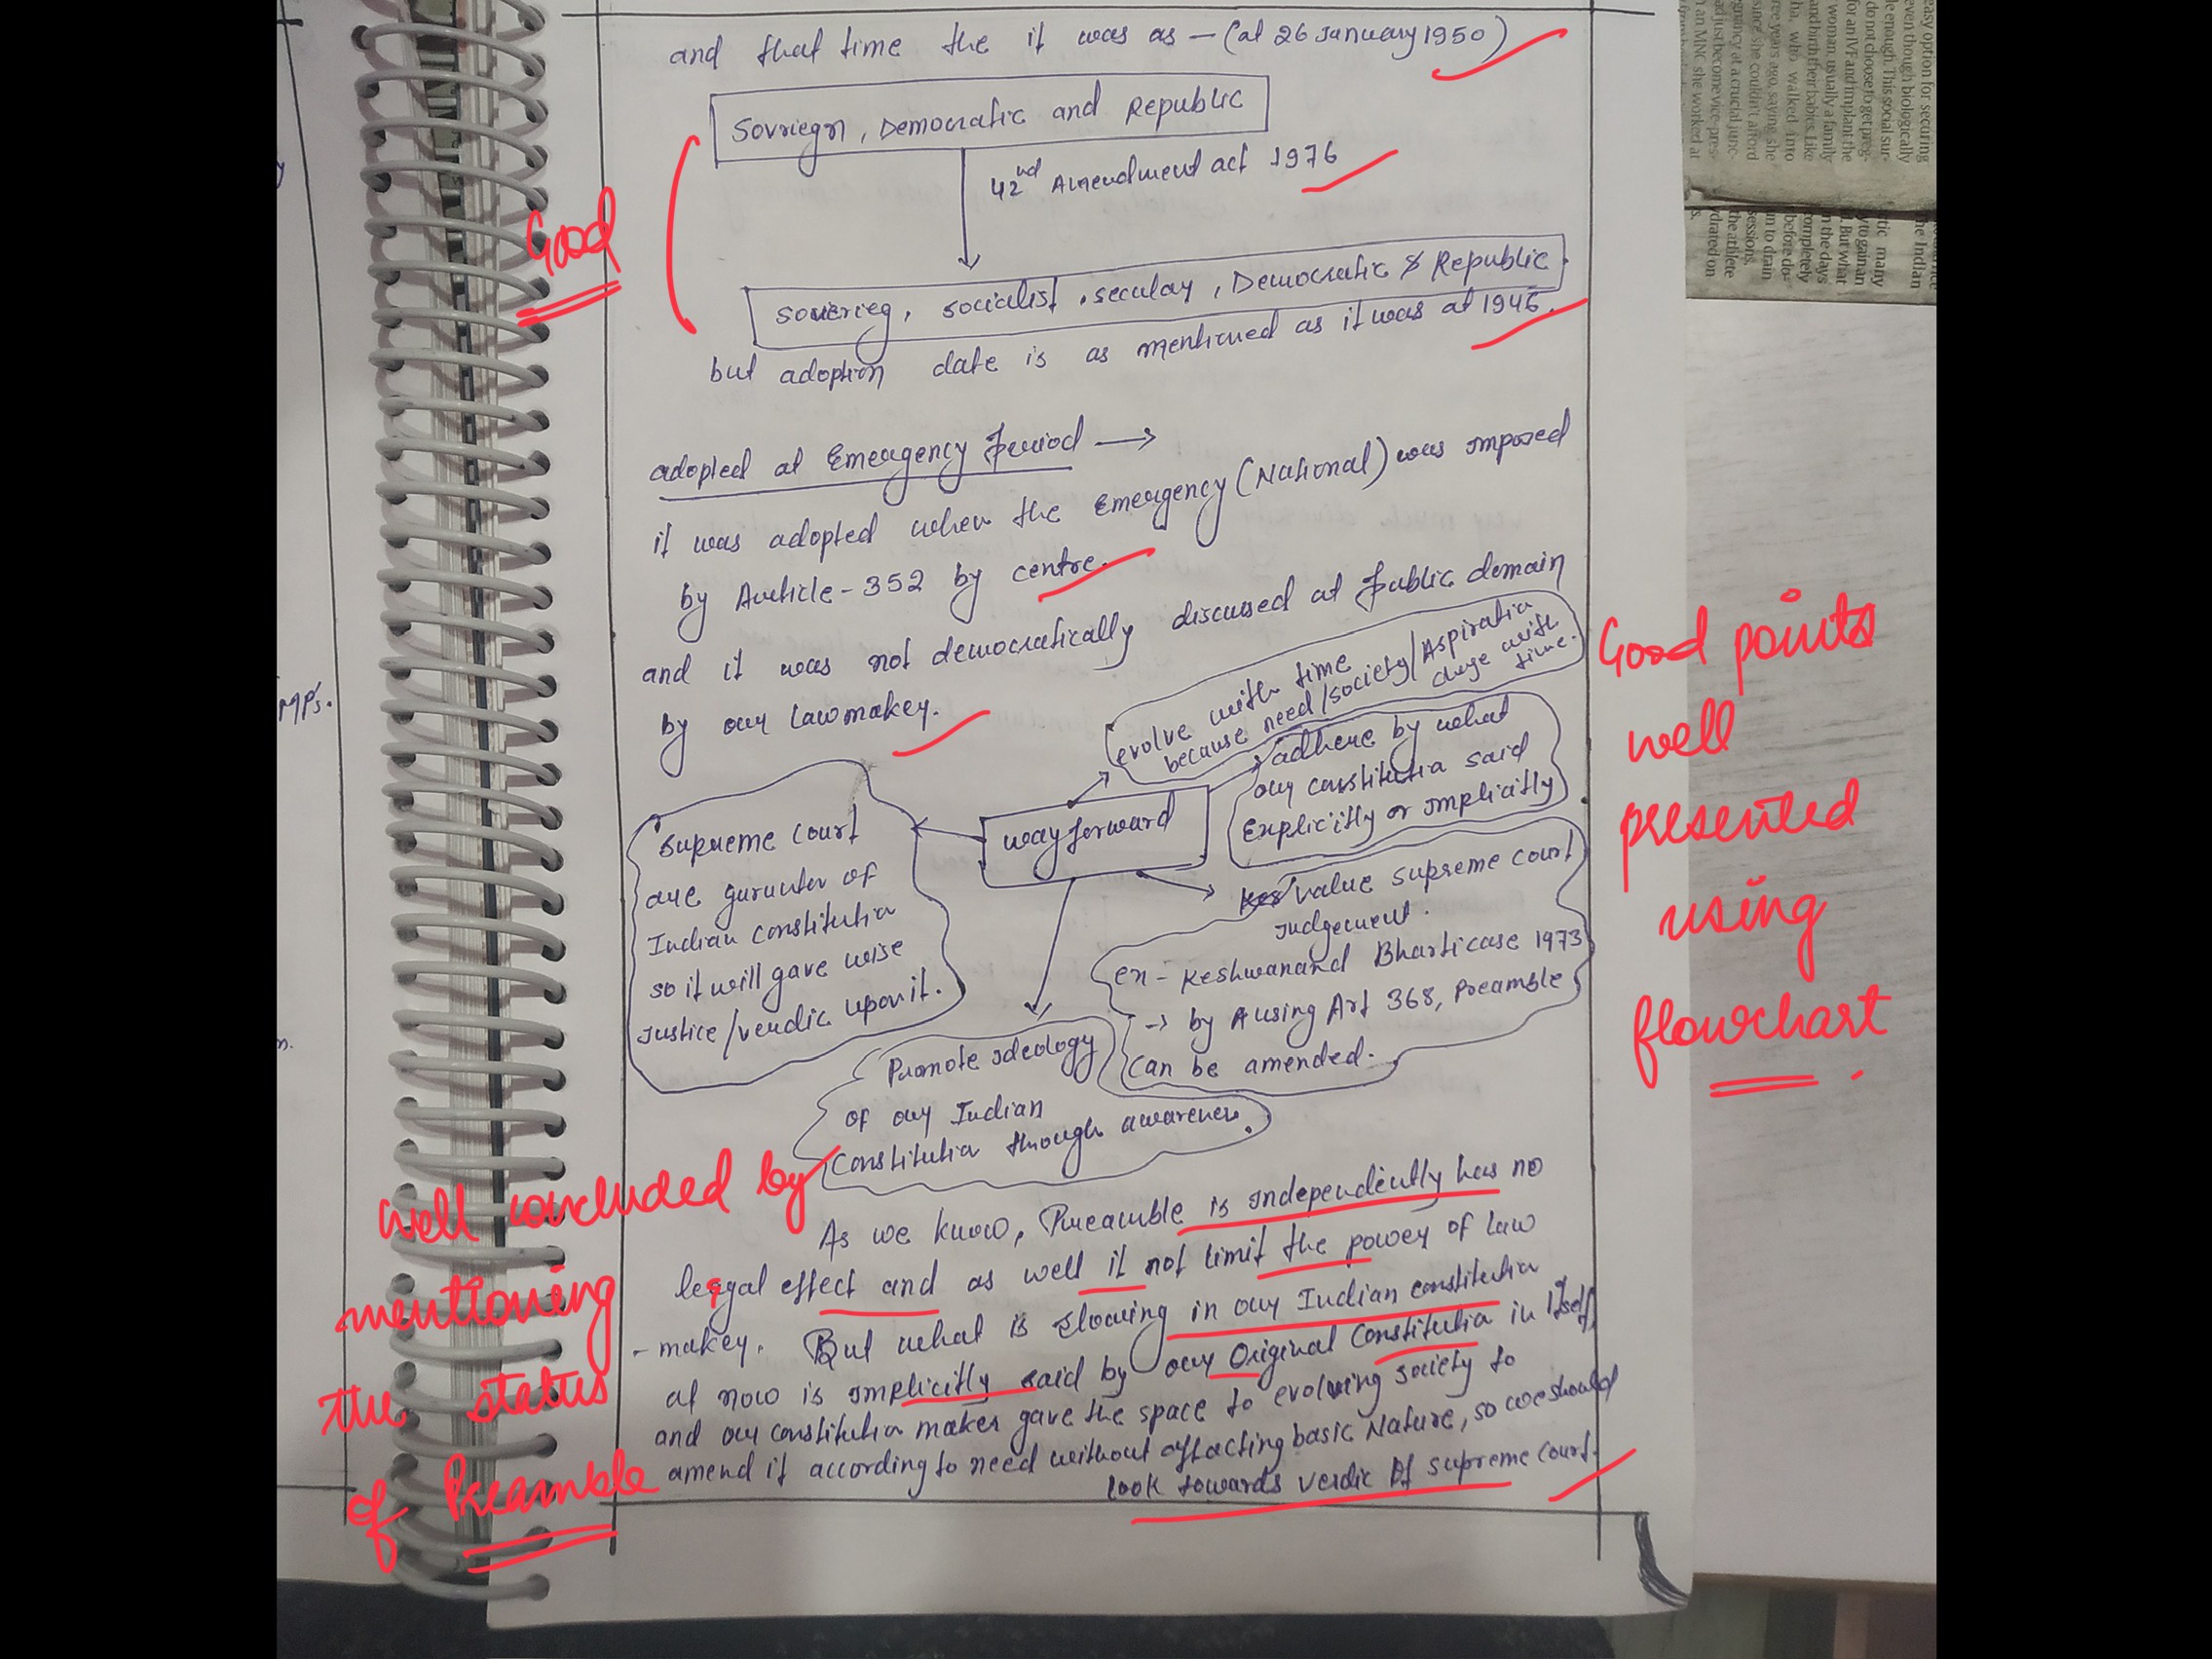 and that time the it was as - (at 26 January 1950)
Sovriegn, Democratic and Republic
42nd Amendment act 1976
Good
Soverieg, socialist, secular, Democratic & Republic
but adoption date is as mentioned as it was at 1946.
adopted at Emergency Period →
it was adopted when the Emergency (National) was imposed
by Article-352 by centre.
and it was not democratically discussed at public domain
by our Lawmaker.
evolve with time
because need/society/Aspiration
change with
time.
adhere by what
our constitution said
Explicitly or implicitly
way forward
Supreme Court
are guranter of
Indian constitution
so it will gave wise
justice/verdic upon it.
value supreme court
judgement.
ex - Keshwanand Bharti case 1973
→ by using Art 368, Preamble
can be amended.
Promote ideology
of our Indian
Constitution through awareness.
Good points
well
presented
using
flowchart.
well concluded by
mentioning
the status
of Preamble
As we know, Preamble is independently has no
legal effect and as well it not limit the power of law
- maker. But what is in our Indian constitution
at now is implicitly said by our Original Constitution in itself
and our constitution maker gave the space to evolving society to
amend it according to need without affacting basic Nature, so we should
look towards verdic of supreme court.
MP's.
n.
easy option for securing
even though biologically
le enough. This social sur-
do not choose to get preg-
for an IVF and implant the
woman, usually a family
and birth their babies. Like
ha, who walked into
ree years ago, saying she
since she couldn't afford
gnancy at a crucial junc-
ad just become vice-pres-
n an MNC she worked at
the Indian
tic many
y to gain an
But what
n the days
completely
before do-
un to drain
sessions,
the athlete
ydrated on
s.